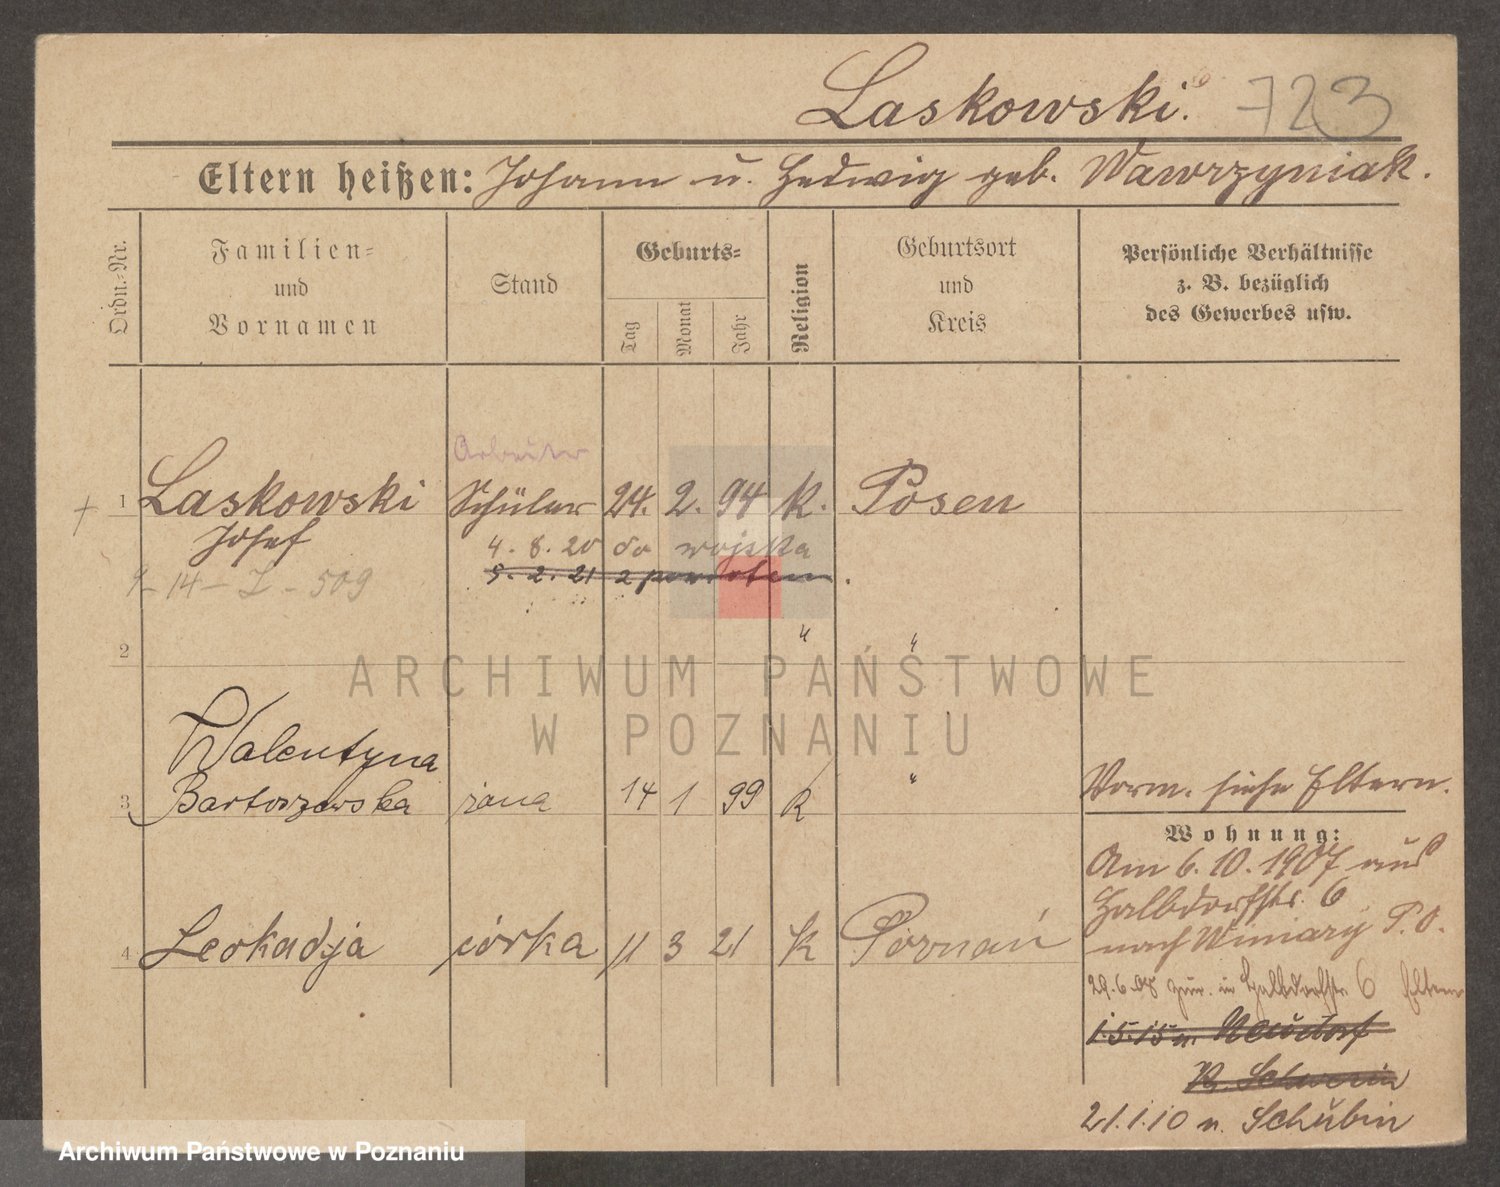 Laskowski. 723
Eltern heißen: Johann u. Hedwig geb. Wawrzyniak.
Ordn.-Nr.
Familien- und Vornamen
Stand
Geburts-
Tag
Monat
Jahr
Religion
Geburtsort und Kreis
Persönliche Verhältnisse
z. B. bezüglich
des Gewerbes usw.
Arbeiter
1 Laskowski Schüler 24. 2. 94 k. Posen
Josef
4. 8. 20 do wojska
9. 2. 21 z powrotem.
14 - I - 509
2 " "
Walentyna
3 Bartoszewska żona 14 1 99 k "
Vorm. siehe Eltern.
Wohnung:
Am 6.10.1907 aus
Halbdorfstr. 6
nach Winiary P.O.
4 Leokadja córka 11 3 21 k Poznań
29.6.08 zur. in Halbdorfstr. 6 Eltern
1.5.15 n. Neudorf
K. Schwerin
21.1.10 n. Schubin
ARCHIWUM PAŃSTWOWE
W POZNANIU
Archiwum Państwowe w Poznaniu